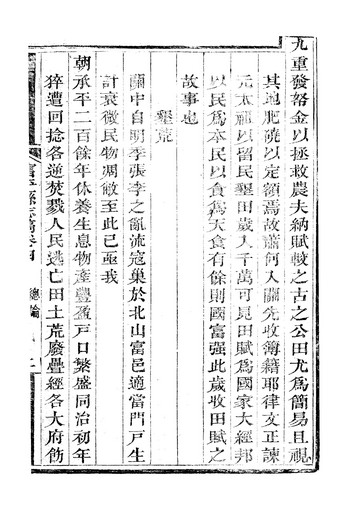 九重發帑金以拯救農夫納賦較之古之公田尤爲簡易且視
其地肥磽以定額焉故蕭何入關先收簿籍耶律文正諫
元太祖以留民墾田歲入千萬可見田賦爲國家大經邦
以民爲本民以食爲天食有餘則國富强此歲收田賦之
故事也
墾荒
關中自明季張李之亂流寇巢於北山富邑適當門戶生
計衰微民物凋敝至此已亟我
朝承平二百餘年休養生息物產豐盈戸口繁盛同治初年
猝遭回捻各逆焚戮人民逃亡田土荒廢疊經各大府飭
富平縣志稿卷四 總論